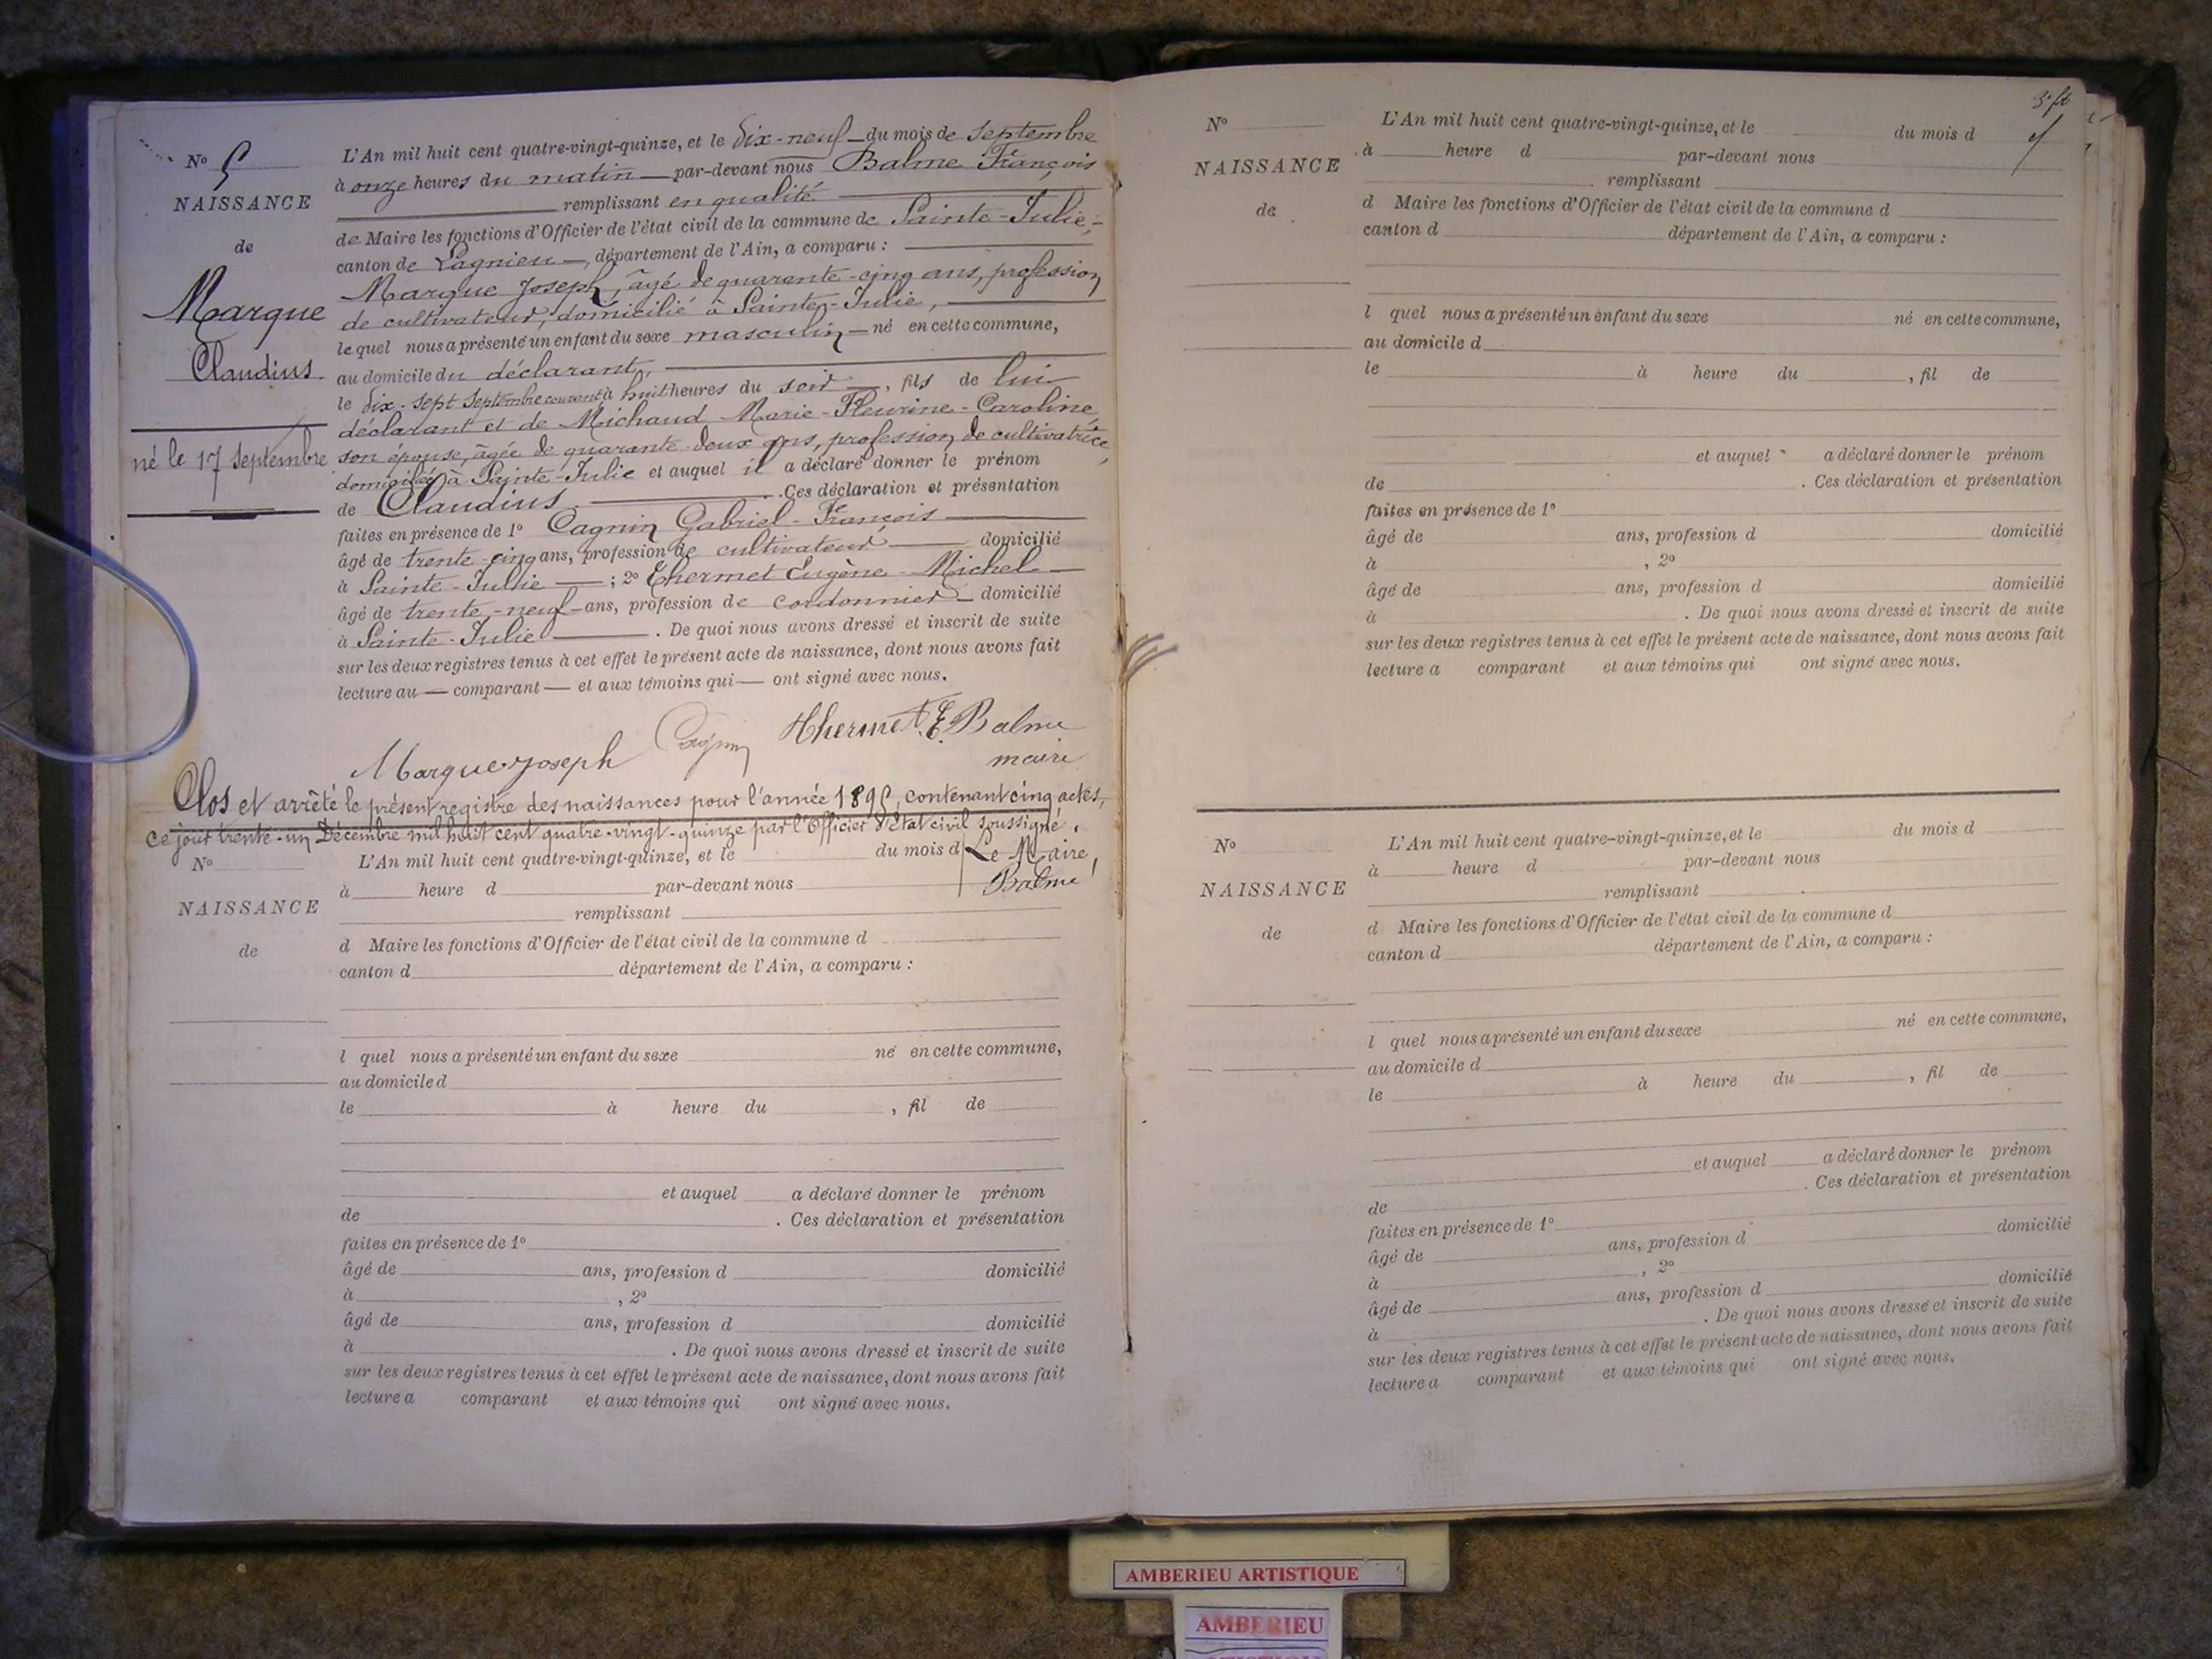 N° 5
NAISSANCE
de
Marque
Claudius.
né le 17 Septembre
L'An mil huit cent quatre-vingt-quinze, et le dix-neuf du mois de Septembre
à onze heures du matin par-devant nous Balme François
remplissant en qualité
de Maire les fonctions d'Officier de l'état civil de la commune de Sainte-Julie,
canton de Lagnieu, département de l'Ain, a comparu :
Marque Joseph, âgé de quarante-cinq ans, profession
de cultivateur, domicilié à Sainte-Julie,
lequel nous a présenté un enfant du sexe masculin né en cette commune,
au domicile du déclarant,
le dix-sept Septembre courant à huit heures du soir, fils de lui
déclarant et de Michaud Marie-Fleurine-Caroline,
son épouse, âgée de quarante-deux ans, profession de cultivatrice,
domiciliée à Sainte-Julie et auquel il a déclaré donner le prénom
de Claudius. Ces déclaration et présentation
faites en présence de 1° Cagnin Gabriel-François
âgé de trente-cinq ans, profession de cultivateur domicilié
à Sainte-Julie ; 2° Thermet Eugène-Michel
âgé de trente-neuf ans, profession de cordonnier domicilié
à Sainte-Julie. De quoi nous avons dressé et inscrit de suite
sur les deux registres tenus à cet effet le présent acte de naissance, dont nous avons fait
lecture au comparant et aux témoins qui ont signé avec nous.
Marque Joseph Cagnin Thermet. E. Balme
maire
Clos et arrêté le présent registre des naissances pour l'année 1895, contenant cinq actes,
ce jour trente-un Décembre mil huit cent quatre-vingt-quinze par l'Officier d'Etat civil soussigné.
Le Maire,
Balme
N°
NAISSANCE
de
L'An mil huit cent quatre-vingt-quinze, et le du mois d
à heure d par-devant nous
remplissant
d Maire les fonctions d'Officier de l'état civil de la commune d
canton d département de l'Ain, a comparu :
l quel nous a présenté un enfant du sexe né en cette commune,
au domicile d
le à heure du , fil de
et auquel a déclaré donner le prénom
de . Ces déclaration et présentation
faites en présence de 1°
âgé de ans, profession d domicilié
à , 2°
âgé de ans, profession d domicilié
à . De quoi nous avons dressé et inscrit de suite
sur les deux registres tenus à cet effet le présent acte de naissance, dont nous avons fait
lecture a comparant et aux témoins qui ont signé avec nous.
N°
NAISSANCE
de
L'An mil huit cent quatre-vingt-quinze, et le du mois d
à heure d par-devant nous
remplissant
d Maire les fonctions d'Officier de l'état civil de la commune d
canton d département de l'Ain, a comparu :
l quel nous a présenté un enfant du sexe né en cette commune,
au domicile d
le à heure du , fil de
et auquel a déclaré donner le prénom
de . Ces déclaration et présentation
faites en présence de 1°
âgé de ans, profession d domicilié
à , 2°
âgé de ans, profession d domicilié
à . De quoi nous avons dressé et inscrit de suite
sur les deux registres tenus à cet effet le présent acte de naissance, dont nous avons fait
lecture a comparant et aux témoins qui ont signé avec nous.
N°
NAISSANCE
de
L'An mil huit cent quatre-vingt-quinze, et le du mois d
à heure d par-devant nous
remplissant
d Maire les fonctions d'Officier de l'état civil de la commune d
canton d département de l'Ain, a comparu :
l quel nous a présenté un enfant du sexe né en cette commune,
au domicile d
le à heure du , fil de
et auquel a déclaré donner le prénom
de . Ces déclaration et présentation
faites en présence de 1°
âgé de ans, profession d domicilié
à , 2°
âgé de ans, profession d domicilié
à . De quoi nous avons dressé et inscrit de suite
sur les deux registres tenus à cet effet le présent acte de naissance, dont nous avons fait
lecture a comparant et aux témoins qui ont signé avec nous.
AMBERIEU ARTISTIQUE
AMBERIEU